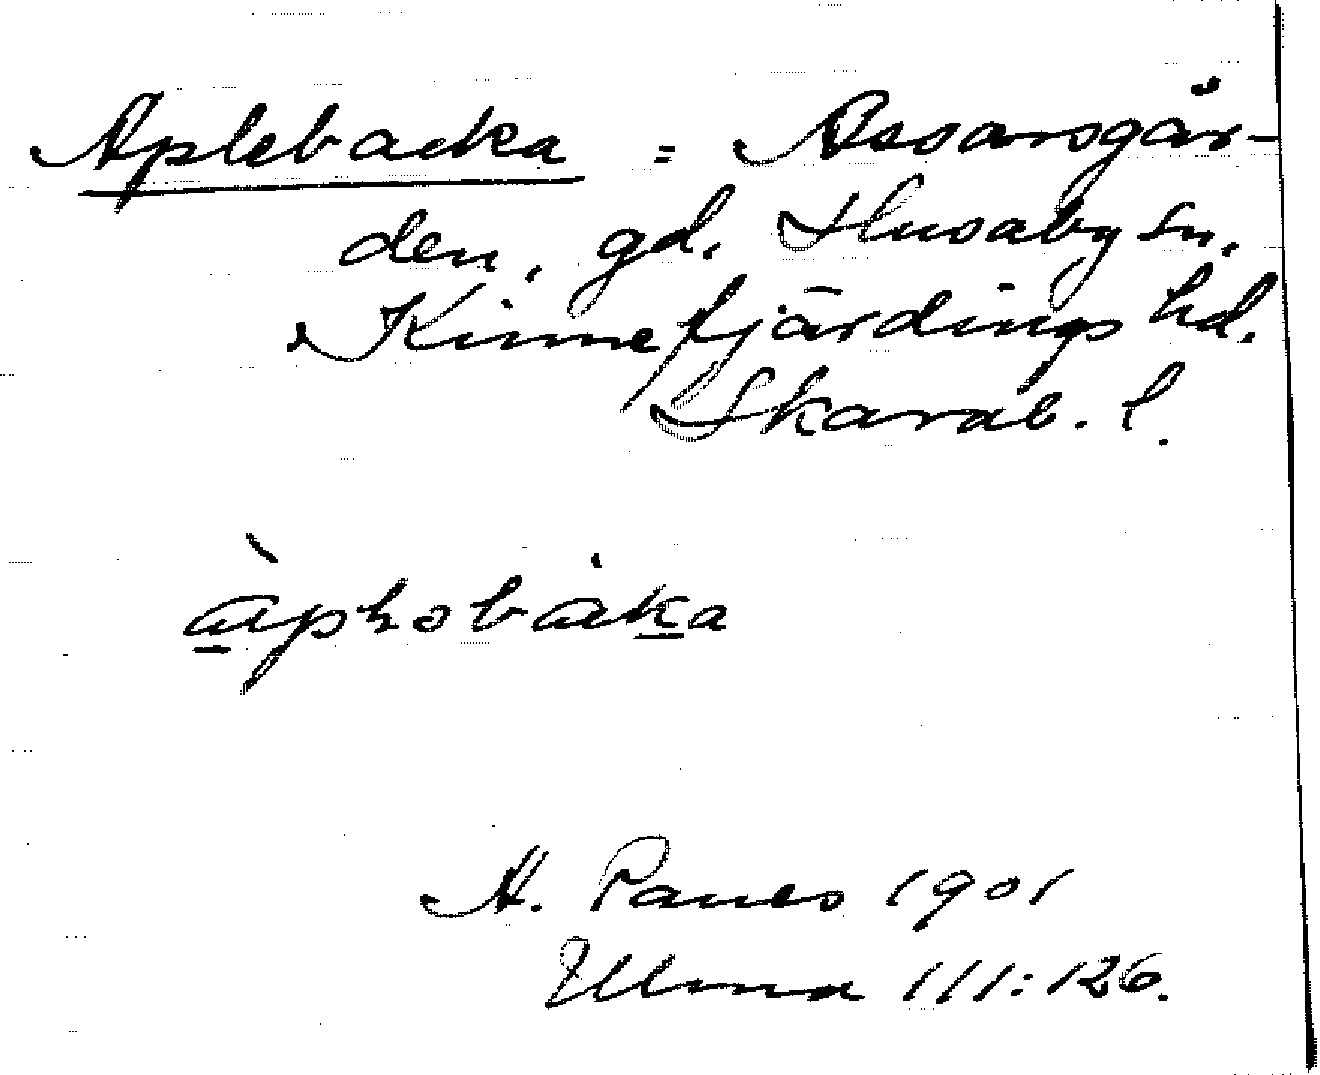 Aplebacka = Assarsgår-
den, gd. Husaby sn,
Kinnefjärdings hd.
Skarab. l.
A. Paues 1901
Ulma 111:126.